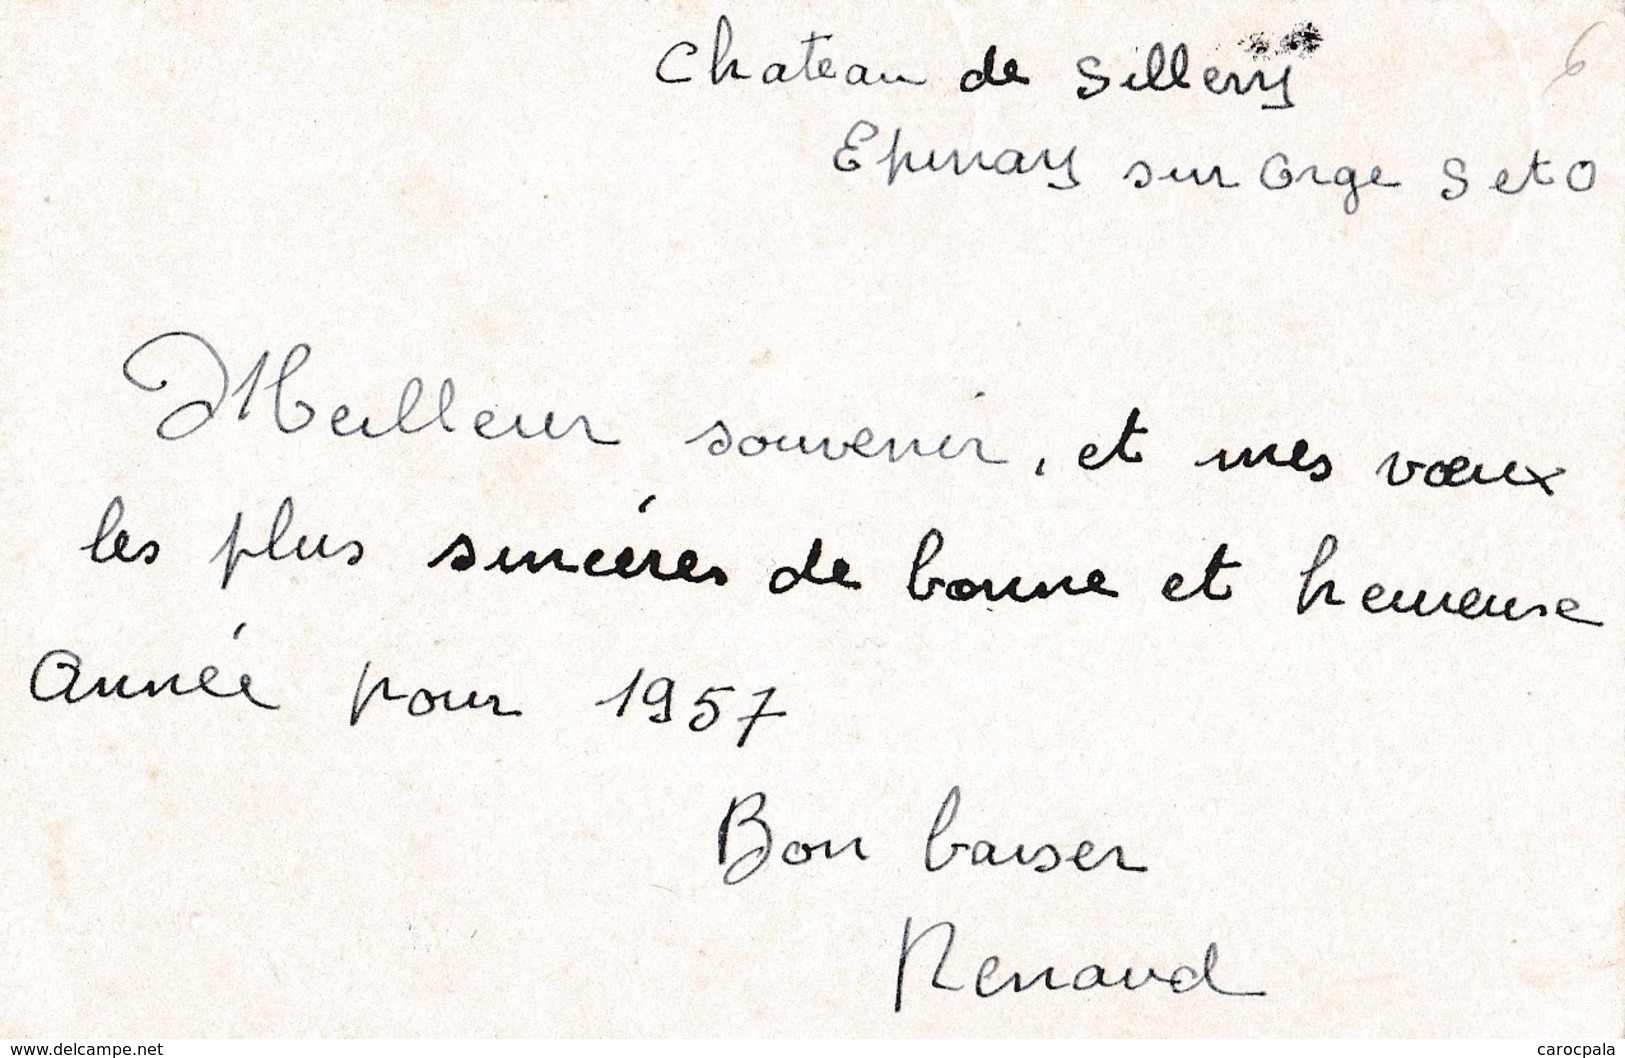 Chateau de Sillery
6
Epinay sur Orge S et O
Meilleur souvenir, et mes vœux
les plus sincéres de bonne et heureuse
Année pour 1957
Bon baiser
Renaud
www.delcampe.net
carocpala